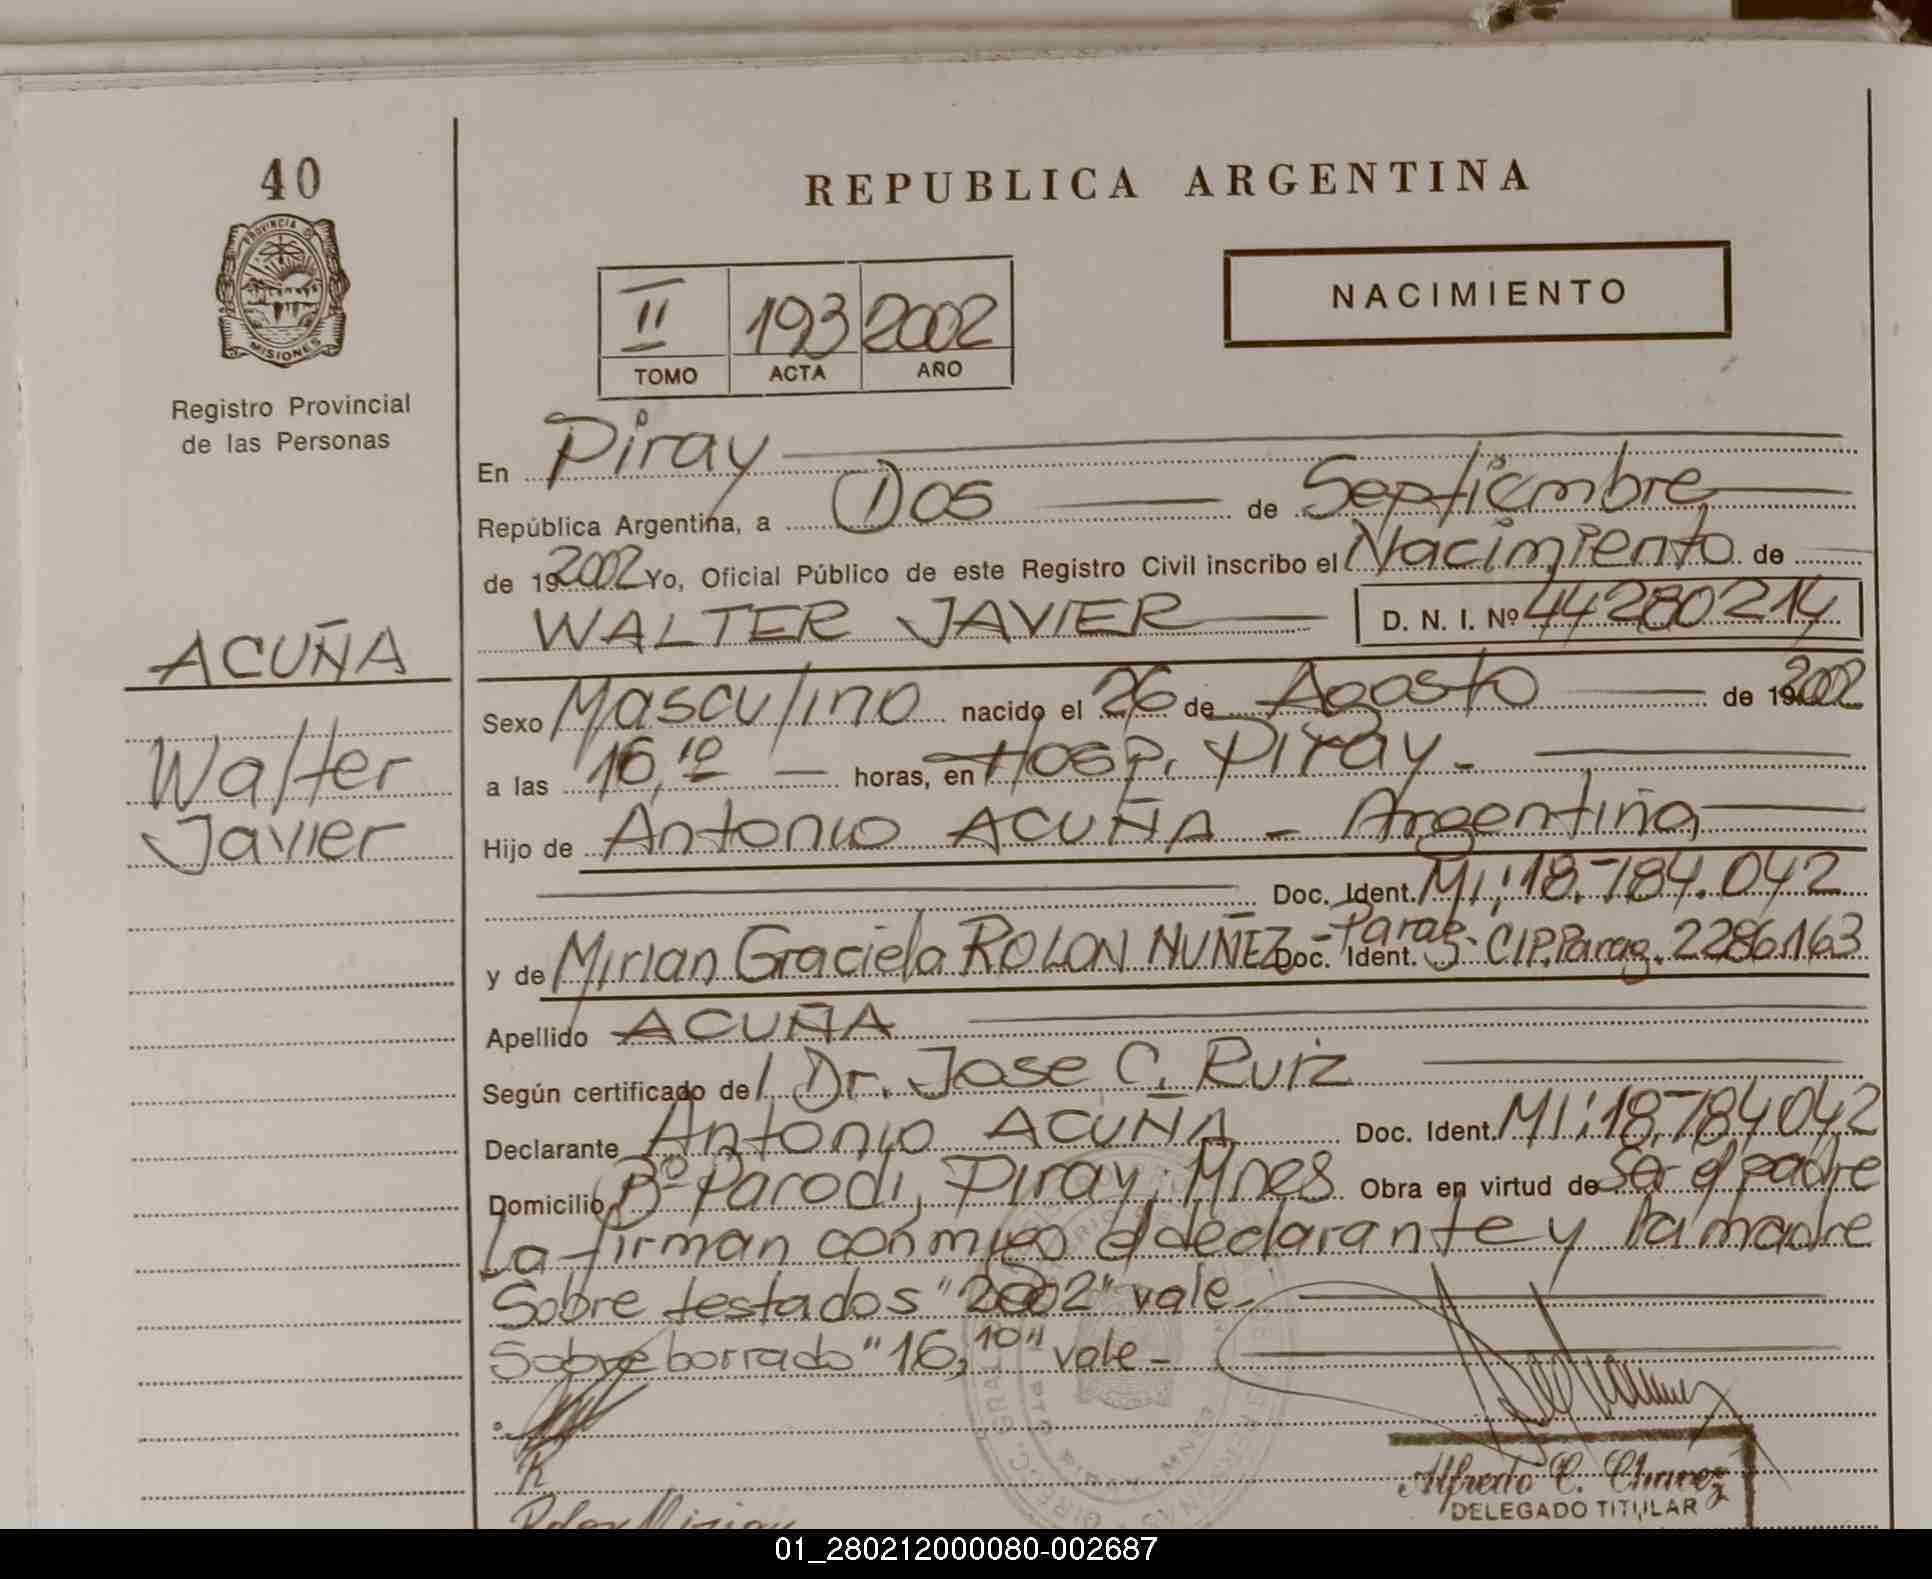 40
REPUBLICA ARGENTINA
PROVINCIA DE
MISIONES
Registro Provincial
de las Personas
II 193 2002
TOMO ACTA AÑO
NACIMIENTO
En Piray
República Argentina, a Dos de Septiembre
de 192002 Yo, Oficial Público de este Registro Civil inscribo el Nacimiento de
WALTER JAVIER D. N. I. Nº 44280214
ACUÑA
Walter
Javier
Sexo Masculino nacido el 26 de Agosto de 192002
a las 16,10 horas, en Hosp. Piray.
Hijo de Antonio ACUÑA - Argentina
Doc. Ident. MI: 18.784.042
y de Mirian Graciela ROLON NUÑEZ - Parag. Doc. Ident. CIP.Parag. 2286163
Apellido ACUÑA
Según certificado del Dr. Jose C. Ruiz
Declarante Antonio ACUÑA Doc. Ident. MI: 18.784042
Domicilio Bº Parodi, Piray, Mnes Obra en virtud de Ser el padre
La firman conmigo el declarante y la madre
Sobre testados "2002" vale
Sobre borrado "16,10" vale -
Rolon Mirian
Alfredo C. Chavez
DELEGADO TITULAR
01_280212000080-002687